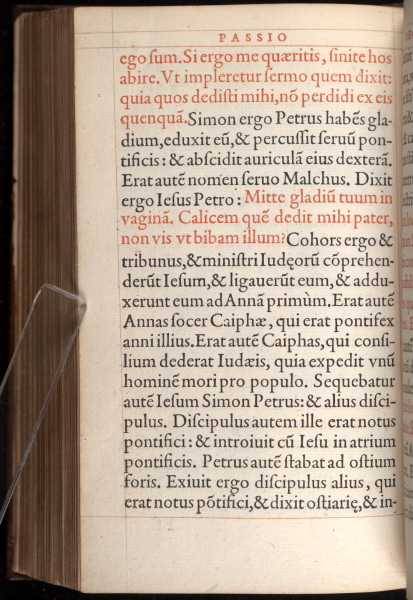 PASSIO
ego ſum. Si ergo me quæritis, ſinite hos
abire. Vt impleretur ſermo quem dixit:
quia quos dediſti mihi, nō perdidi ex eis
quenquā. Simon ergo Petrus habēs gla-
dium, eduxit eū, & percuſſit ſeruū pon-
tificis: & abſcidit auriculā eius dexterā.
Erat autē nomen ſeruo Malchus. Dixit
ergo Ieſus Petro: Mitte gladiū tuum in
vaginā. Calicem quē dedit mihi pater,
non vis vt bibam illum? Cohors ergo &
tribunus, & miniſtri Iudęorū cōprehen-
derūt Ieſum, & ligauerūt eum, & addu-
xerunt eum ad Annā primùm. Erat autē
Annas ſocer Caiphæ, qui erat pontifex
anni illius. Erat autē Caiphas, qui conſi-
lium dederat Iudæis, quia expedit vnū
hominē mori pro populo. Sequebatur
autē Ieſum Simon Petrus: & alius diſci-
pulus. Diſcipulus autem ille erat notus
pontifici: & introiuit cū Ieſu in atrium
pontificis. Petrus autē ſtabat ad oſtium
foris. Exiuit ergo diſcipulus alius, qui
erat notus pōtifici, & dixit oſtiarię, & in-